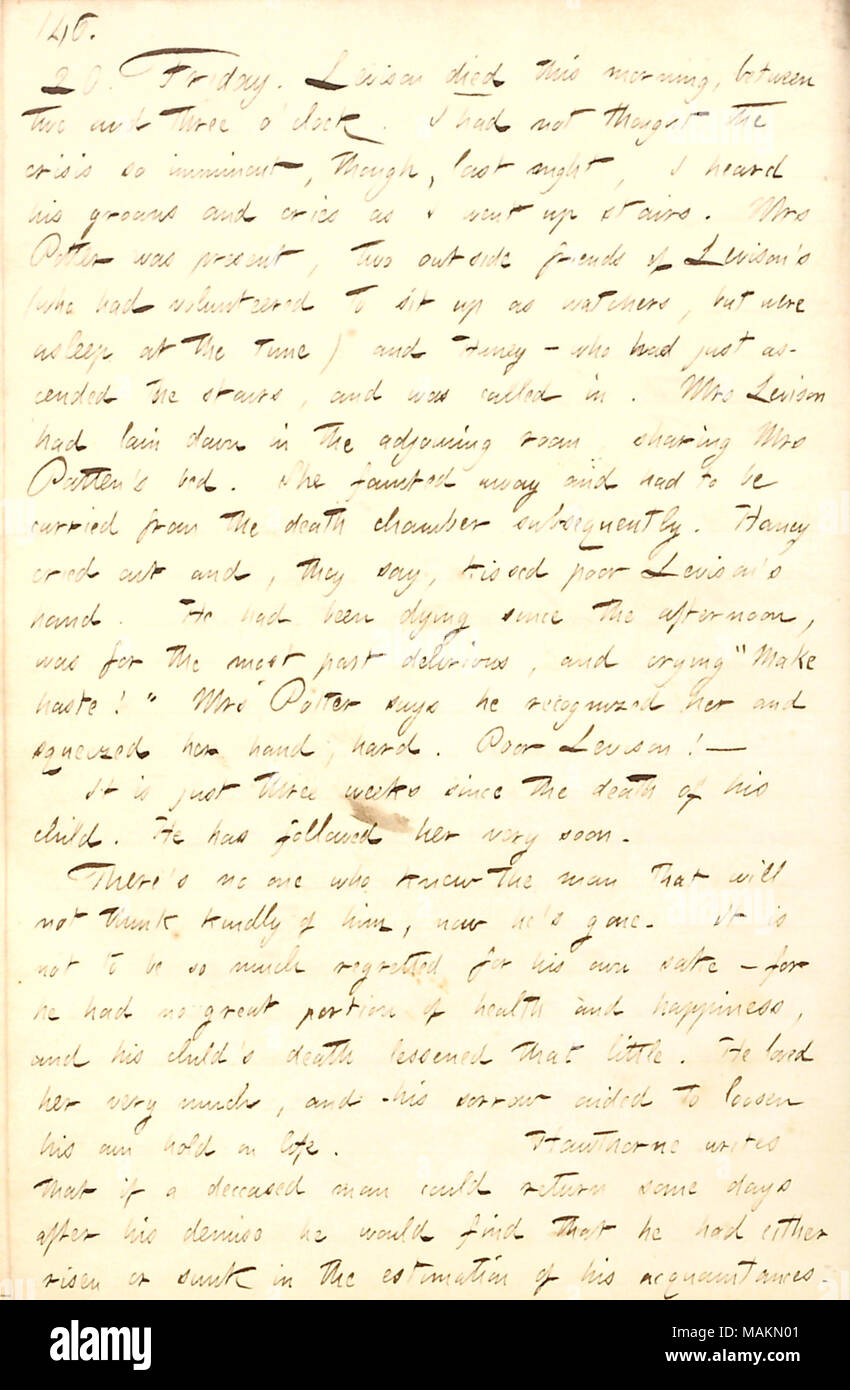 146.
20. Friday. Levison died this morning, between
two and three o'clock. I had not thought the
crisis so imminent, though, last night, I heard
his groans and cries as I went up stairs. Mrs
Potter was present, two outside friends of Levison's
(who had volunteered to sit up as watchers, but were
asleep at the time) and Haney - who had just as-
cended the stairs, and was called in. Mrs Levison
had lain down in the adjoining room, sharing Mrs
Patten's bed. She fainted away and had to be
carried from the death chamber subsequently. Haney
cried out and, they say, kissed poor Levison's
hand. He had been dying since the afternoon,
was for the most part delirious, and crying "Make
haste!" Mrs Potter says he recognized her and
squeezed her hand, hard. Poor Levison! —
It is just three weeks since the death of his
child. He has followed her very soon.
There's no one who knew the man that will
not think kindly of him, now he's gone. It is
not to be so much regretted for his own sake - for
he had no great portion of health and happiness,
and his child's death lessened that little. He loved
her very much, and his sorrow aided to loosen
his own hold on life. Hawthorne writes
that if a deceased man could return some days
after his demise he would find that he had either
risen or sunk in the estimation of his acquaintances.
alamy
Image ID: MAKN01
www.alamy.com